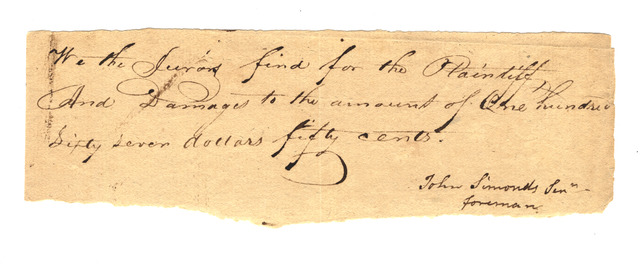 We the Jurors find for the Plaintiff
And Damages to the amount of One hundred
Sixty seven dollars fifty cents.
John Simonds Senr
foreman